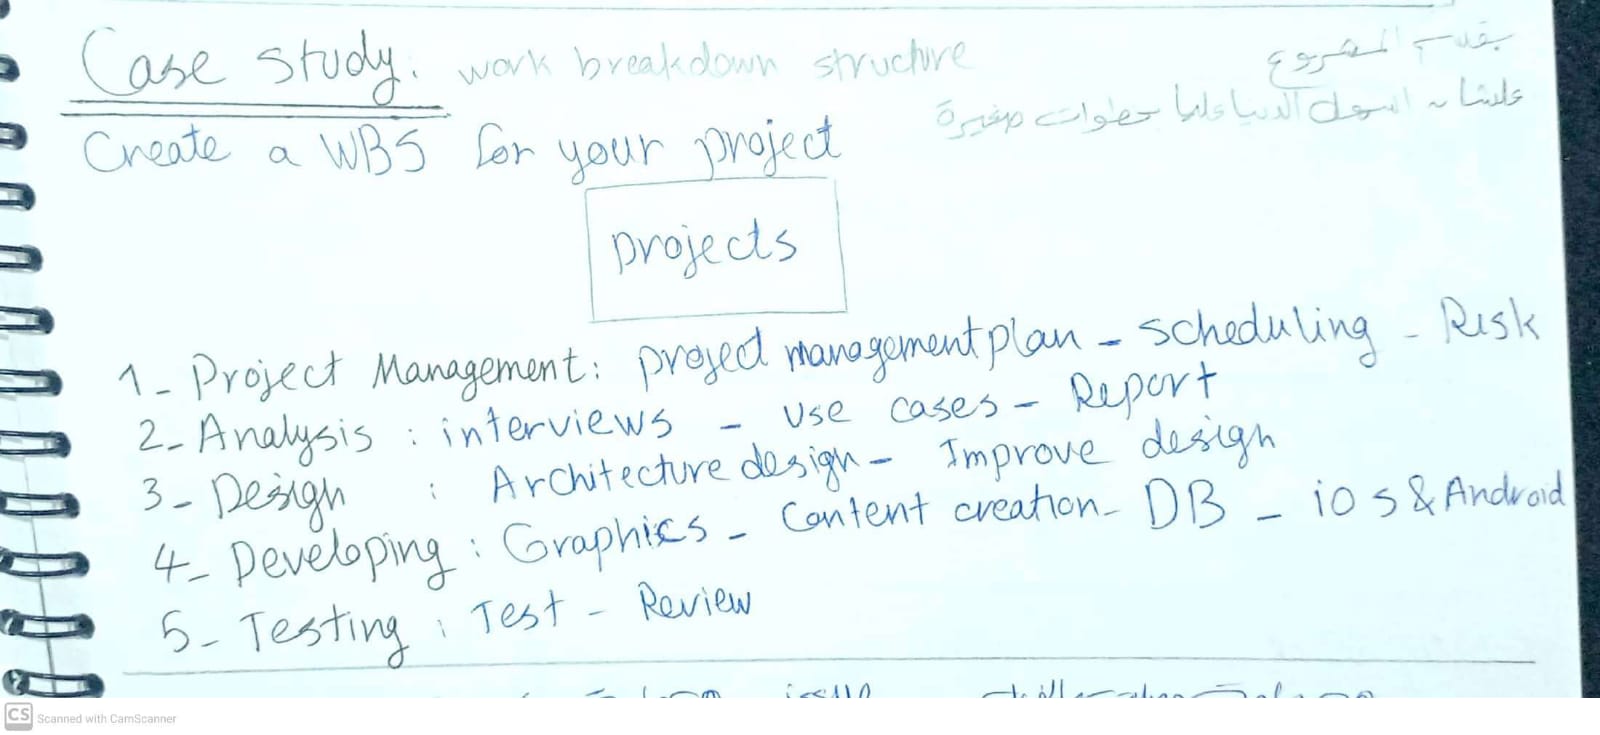 Case study: work breakdown structure
بقسم المشروع
علشان اسهل الدنيا علينا خطوات صغيرة
Create a WBS for your project
projects
1- Project Management: project management plan - scheduling - Risk
2- Analysis : interviews - use cases - Report
3- Design : Architecture design - Improve design
4- Developing : Graphics - Content creation - DB - ios & Android
5- Testing : Test - Review
issue
CS Scanned with CamScanner